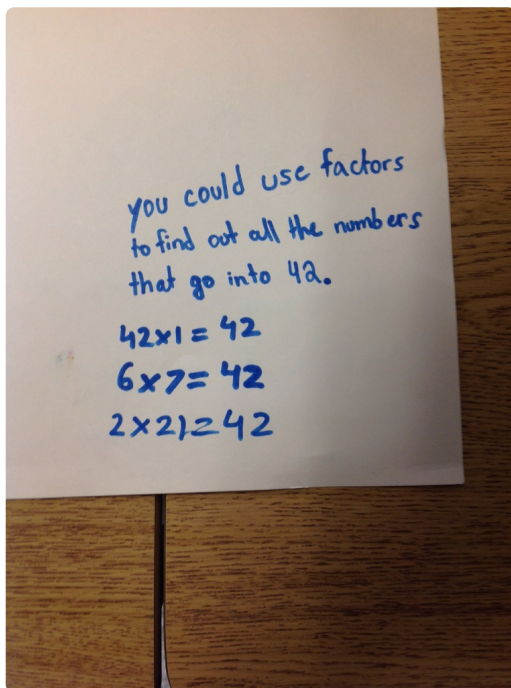 you could use factors
to find out all the numbers
that go into 42.
42x1 = 42
6x7= 42
2x21=42